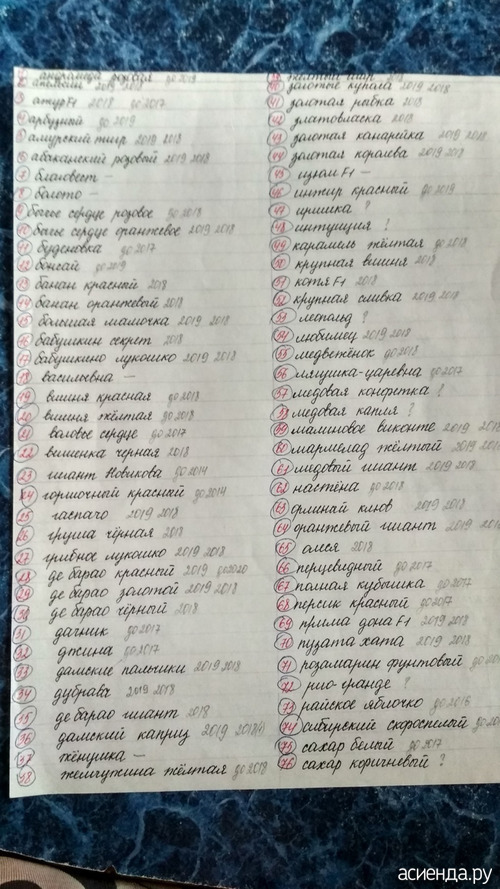 андромеда розовая до2019
2 апельсин 2019 2018
3 атур F1 2018 до2017
4 арбузный до 2019
5 амурский тигр 2019 2018
6 абаканский розовый 2019 2018
7 благовест —
8 болото —
9 бычье сердце розовое до2018
10 бычье сердце оранжевое 2019 2018
11 буденовка до2017
12 бонсай до2019
13 банан красный 2018
14 банан оранжевый 2018
15 большая мамочка 2019 2018
16 бабушкин секрет 2018
17 бабушкино лукошко 2019 2018
18 васильевна —
19 вишня красная до2018
20 вишня жёлтая до2018
21 воловье сердце до2017
22 вишенка черная 2018
23 гигант Новикова до2014
24 горшочный красный до2014
25 гаспачо 2019 2018
26 груша чёрная 2018
27 грибное лукошко 2019 2018
28 де барао красный 2019 до2020
29 де барао золотой 2019 2018
30 де барао чёрный 2018
31 дачник до2017
32 джина до2017
33 дамские пальчики 2019 2018
34 дубрава 2019 2018
35 де барао гигант 2018
36 дамский каприз 2019 2018
37 —
38 жемчужина жёлтая до2018
39 жёлтый шар 2018
40 золотые купола 2019 2018
41 золотая рыбка 2018
42 златовласка 2018
43 золотая канарейка 2019 2018
44 золотая королева 2019 2018
45 изюм F1 —
46 инжир красный до2019
47 иришка ?
48 интуиция ?
49 карамель жёлтая до2018
50 крупная вишня 2018
51 котя F1 2018
52 крупная сливка 2019 2018
53 леопольд ?
54 любимец 2019 2018
55 медвежёнок до2018
56 лягушка-царевна до2017
57 медовая конфетка ?
58 медовая капля ?
59 малиновое виконте 2019 2018
60 мармелад жёлтый 2019
61 медовый гигант 2019 2018
62 настёна до2018
63 орлиный клюв 2019 2018
64 оранжевый гигант 2019
65 олеся 2018
66 перцевидный до2017
67 полная кубышка до2017
68 персик красный до2017
69 прима дона F1 2019 2018
70 пузата хата 2019 2018
71 розамарин фунтовый
72 рио-гранде ?
73 райское яблочко до2016
74 сибирский скороспелый
75 сахар белый до2017
76 сахар коричневый ?
асиенда.ру